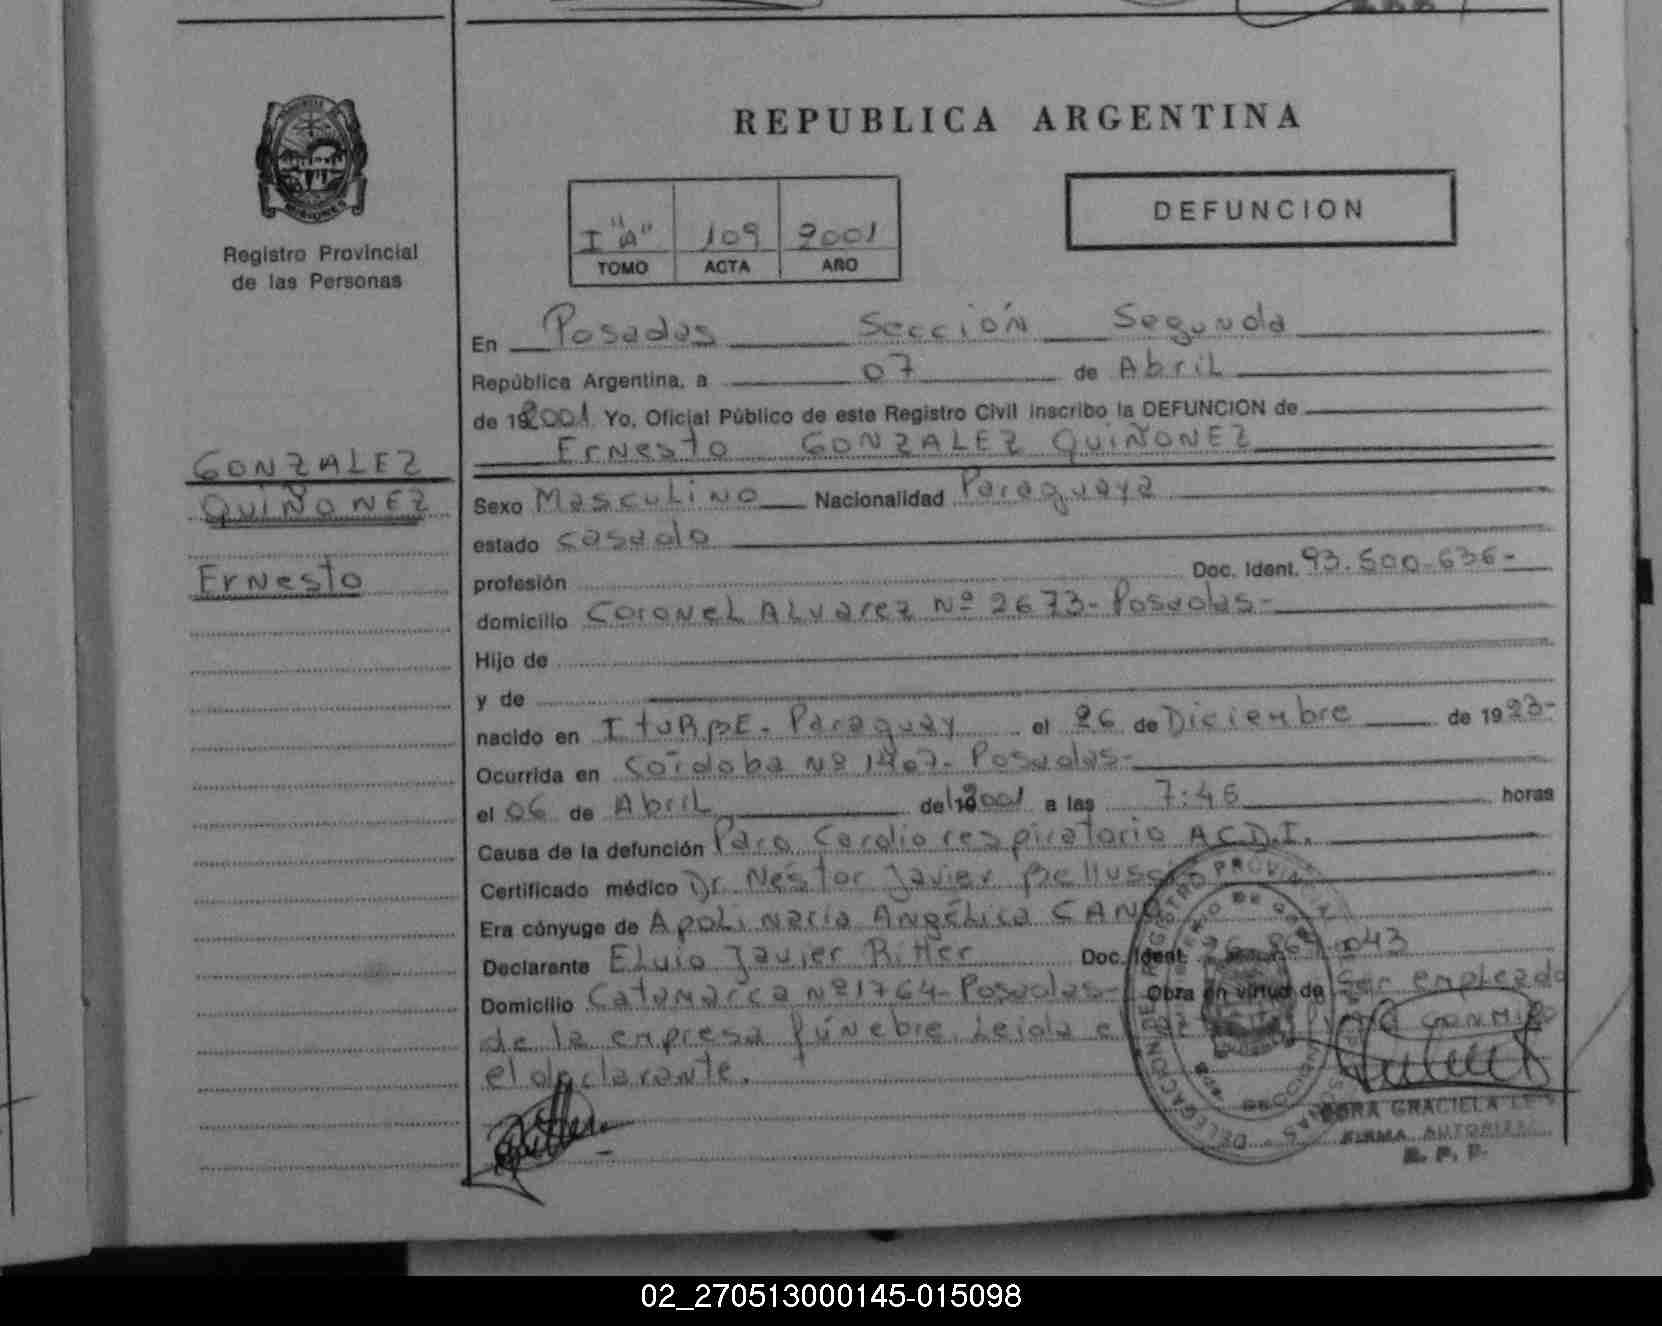 REPUBLICA ARGENTINA
DEFUNCION
I "A" 109 2001
TOMO ACTA AÑO
MISIONES
Registro Provincial
de las Personas
En Posadas Sección Segunda
República Argentina, a 07 de Abril
de 192001 Yo, Oficial Público de este Registro Civil inscribo la DEFUNCION de
Ernesto GONZALEZ QUIÑONEZ
GONZALEZ
QUIÑONEZ
Ernesto
Sexo Masculino Nacionalidad Paraguaya
estado casado
profesión Doc. Ident. 93.500.636-
domicilio Coronel Alvarez Nº 2673- Posadas-
Hijo de
y de
nacido en ITURBE- Paraguay el 26 de Diciembre de 1923-
Ocurrida en Córdoba Nº 1407- Posadas-
el 06 de Abril de 2001 a las 7:46 horas
Causa de la defunción Paro Cardiorespiratorio A.C.D.I.
Certificado médico Dr. Néstor Javier
Era cónyuge de Apolinaria Angélica
Declarante Elvio Javier Ritter Doc. Ident. 043
Domicilio Catamarca Nº 1764- Posadas- Obra en virtud de Ser empleado
de la empresa fúnebre. Leida el CONMIGO
el declarante.
REGISTRO PROVINCIAL
DELEGACION
GRACIELA
FIRMA
R. P. P.
02_270513000145-015098